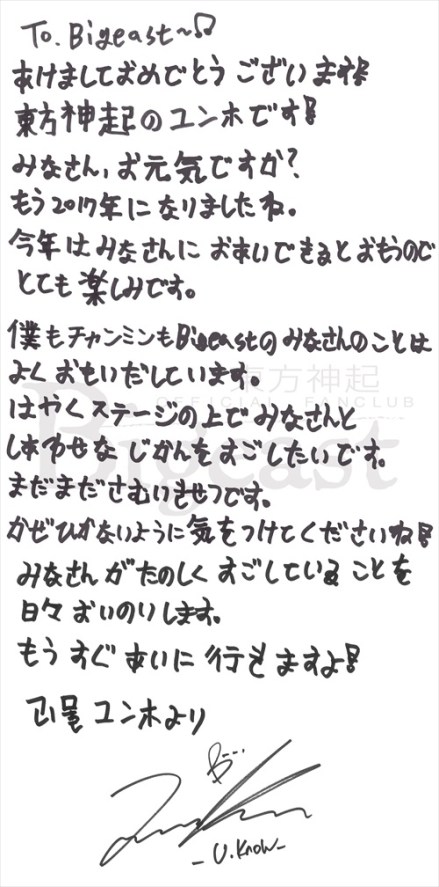 To. Bigeast~♫
あけましておめでとうございます!
東方神起のユンホです!
みなさん、お元気ですか?
もう2017年になりましたね。
今年はみなさんにおあいできるとおもうので
とても楽しみです。
僕もチャンミンもBigeastのみなさんのことは
よくおもいだしています。
東方神起
OFFICIAL FANCLUB
Bigeast
はやくステージの上でみなさんと
しあわせなじかんをすごしたいです。
まだまださむいきせつです。
かぜひかないように気をつけてくださいね!
みなさんがたのしくすごしていることを
日々おいのりします。
もうすぐあいに行きますよ!
괴물 ユンホより
- U.Know -